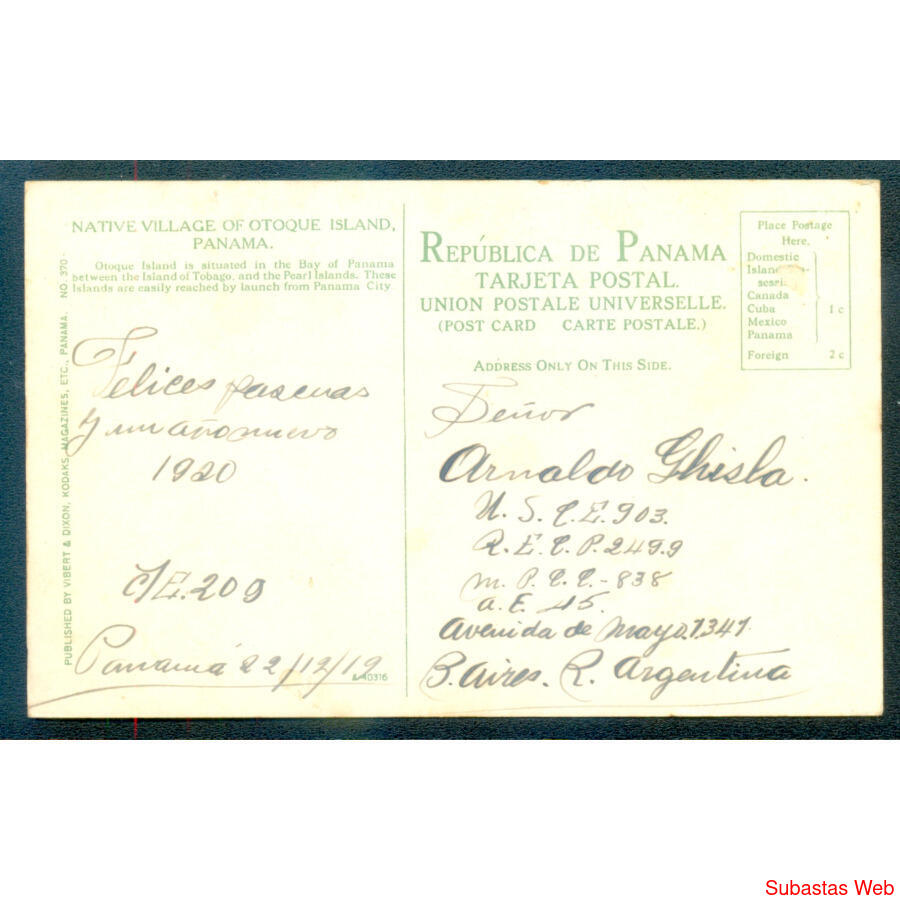 NATIVE VILLAGE OF OTOQUE ISLAND,
PANAMA.
Otoque Island is situated in the Bay of Panama
between the Island of Tobago, and the Pearl Islands. These
Islands are easily reached by launch from Panama City.
PUBLISHED BY VIBERT & DIXON, KODAKS, MAGAZINES, ETC., PANAMA. NO. 370
Felices pascuas
y un año nuevo
1920
C/E. 209
Panamá 22/12/19
A-40316
REPÚBLICA DE PANAMA
TARJETA POSTAL.
UNION POSTALE UNIVERSELLE.
(POST CARD CARTE POSTALE.)
ADDRESS ONLY ON THIS SIDE.
Place Postage
Here.
Domestic
Canada
Cuba 1 c
Mexico
Panama
Foreign 2 c
Señor
Arnaldo Ghisla.
U. S. C. E. 903.
R. E. C. P. 2499
m. P. C. C. - 838
a. E. 45.
Avenida de Mayo 1341.
B. Aires. R. Argentina
Subastas Web